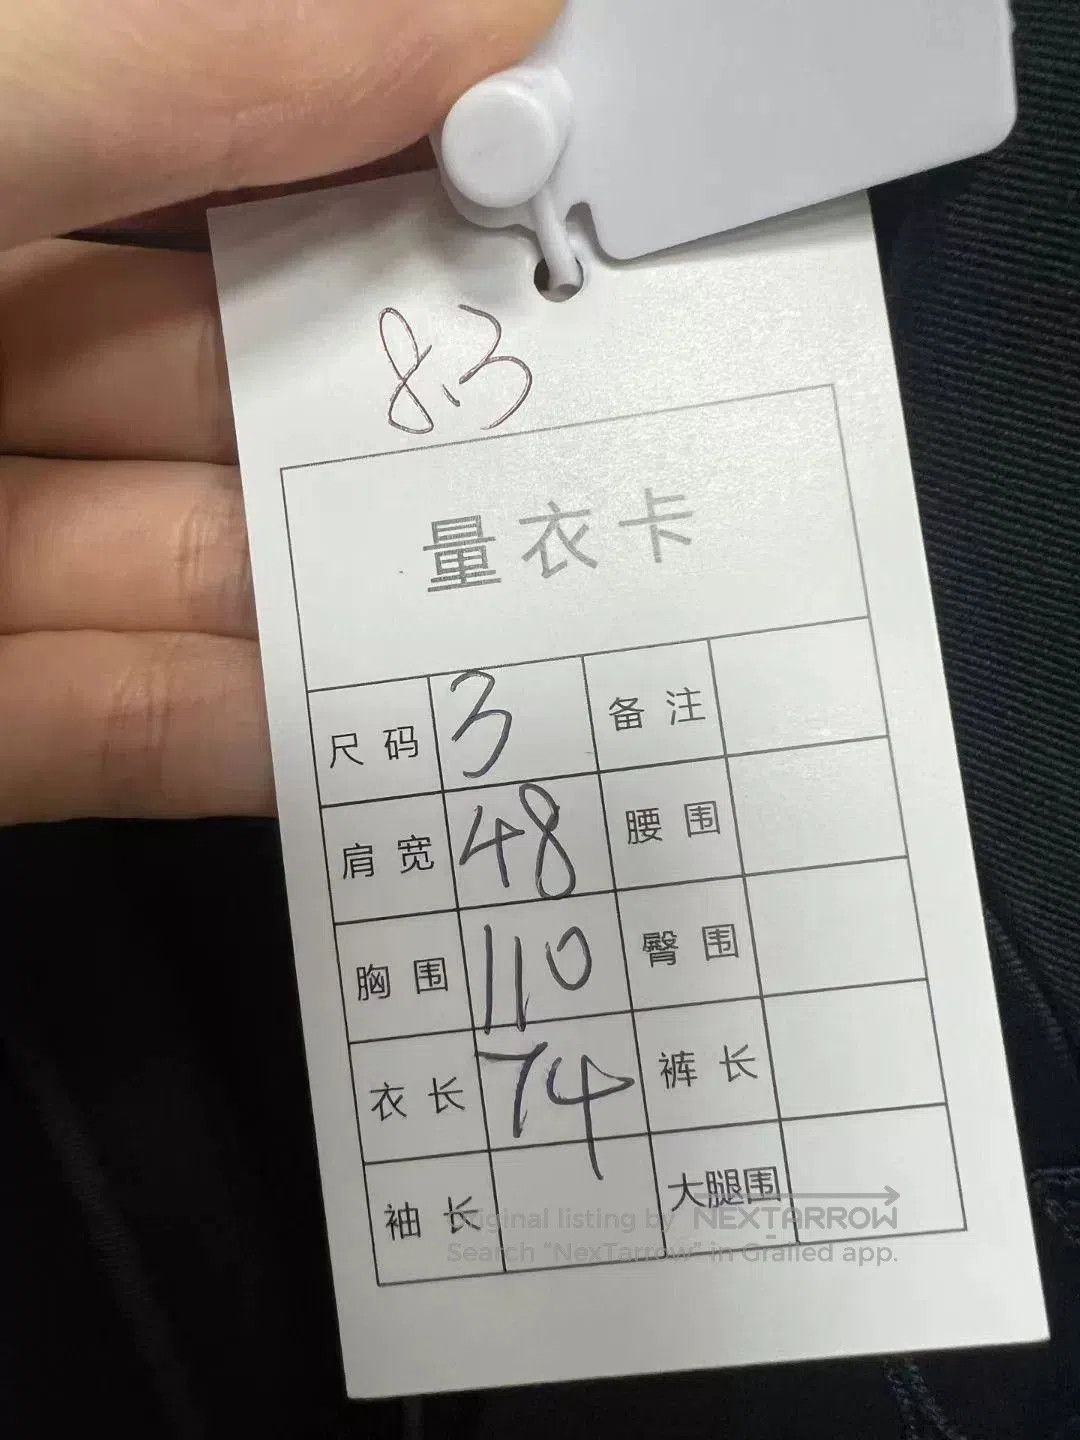 8.3
量衣卡
尺码 3 备注
肩宽 48 腰围
胸围 110 臀围
衣长 74 裤长
袖长 大腿围
Original listing by NEXTARROW
Search "NexTarrow" in Grailed app.